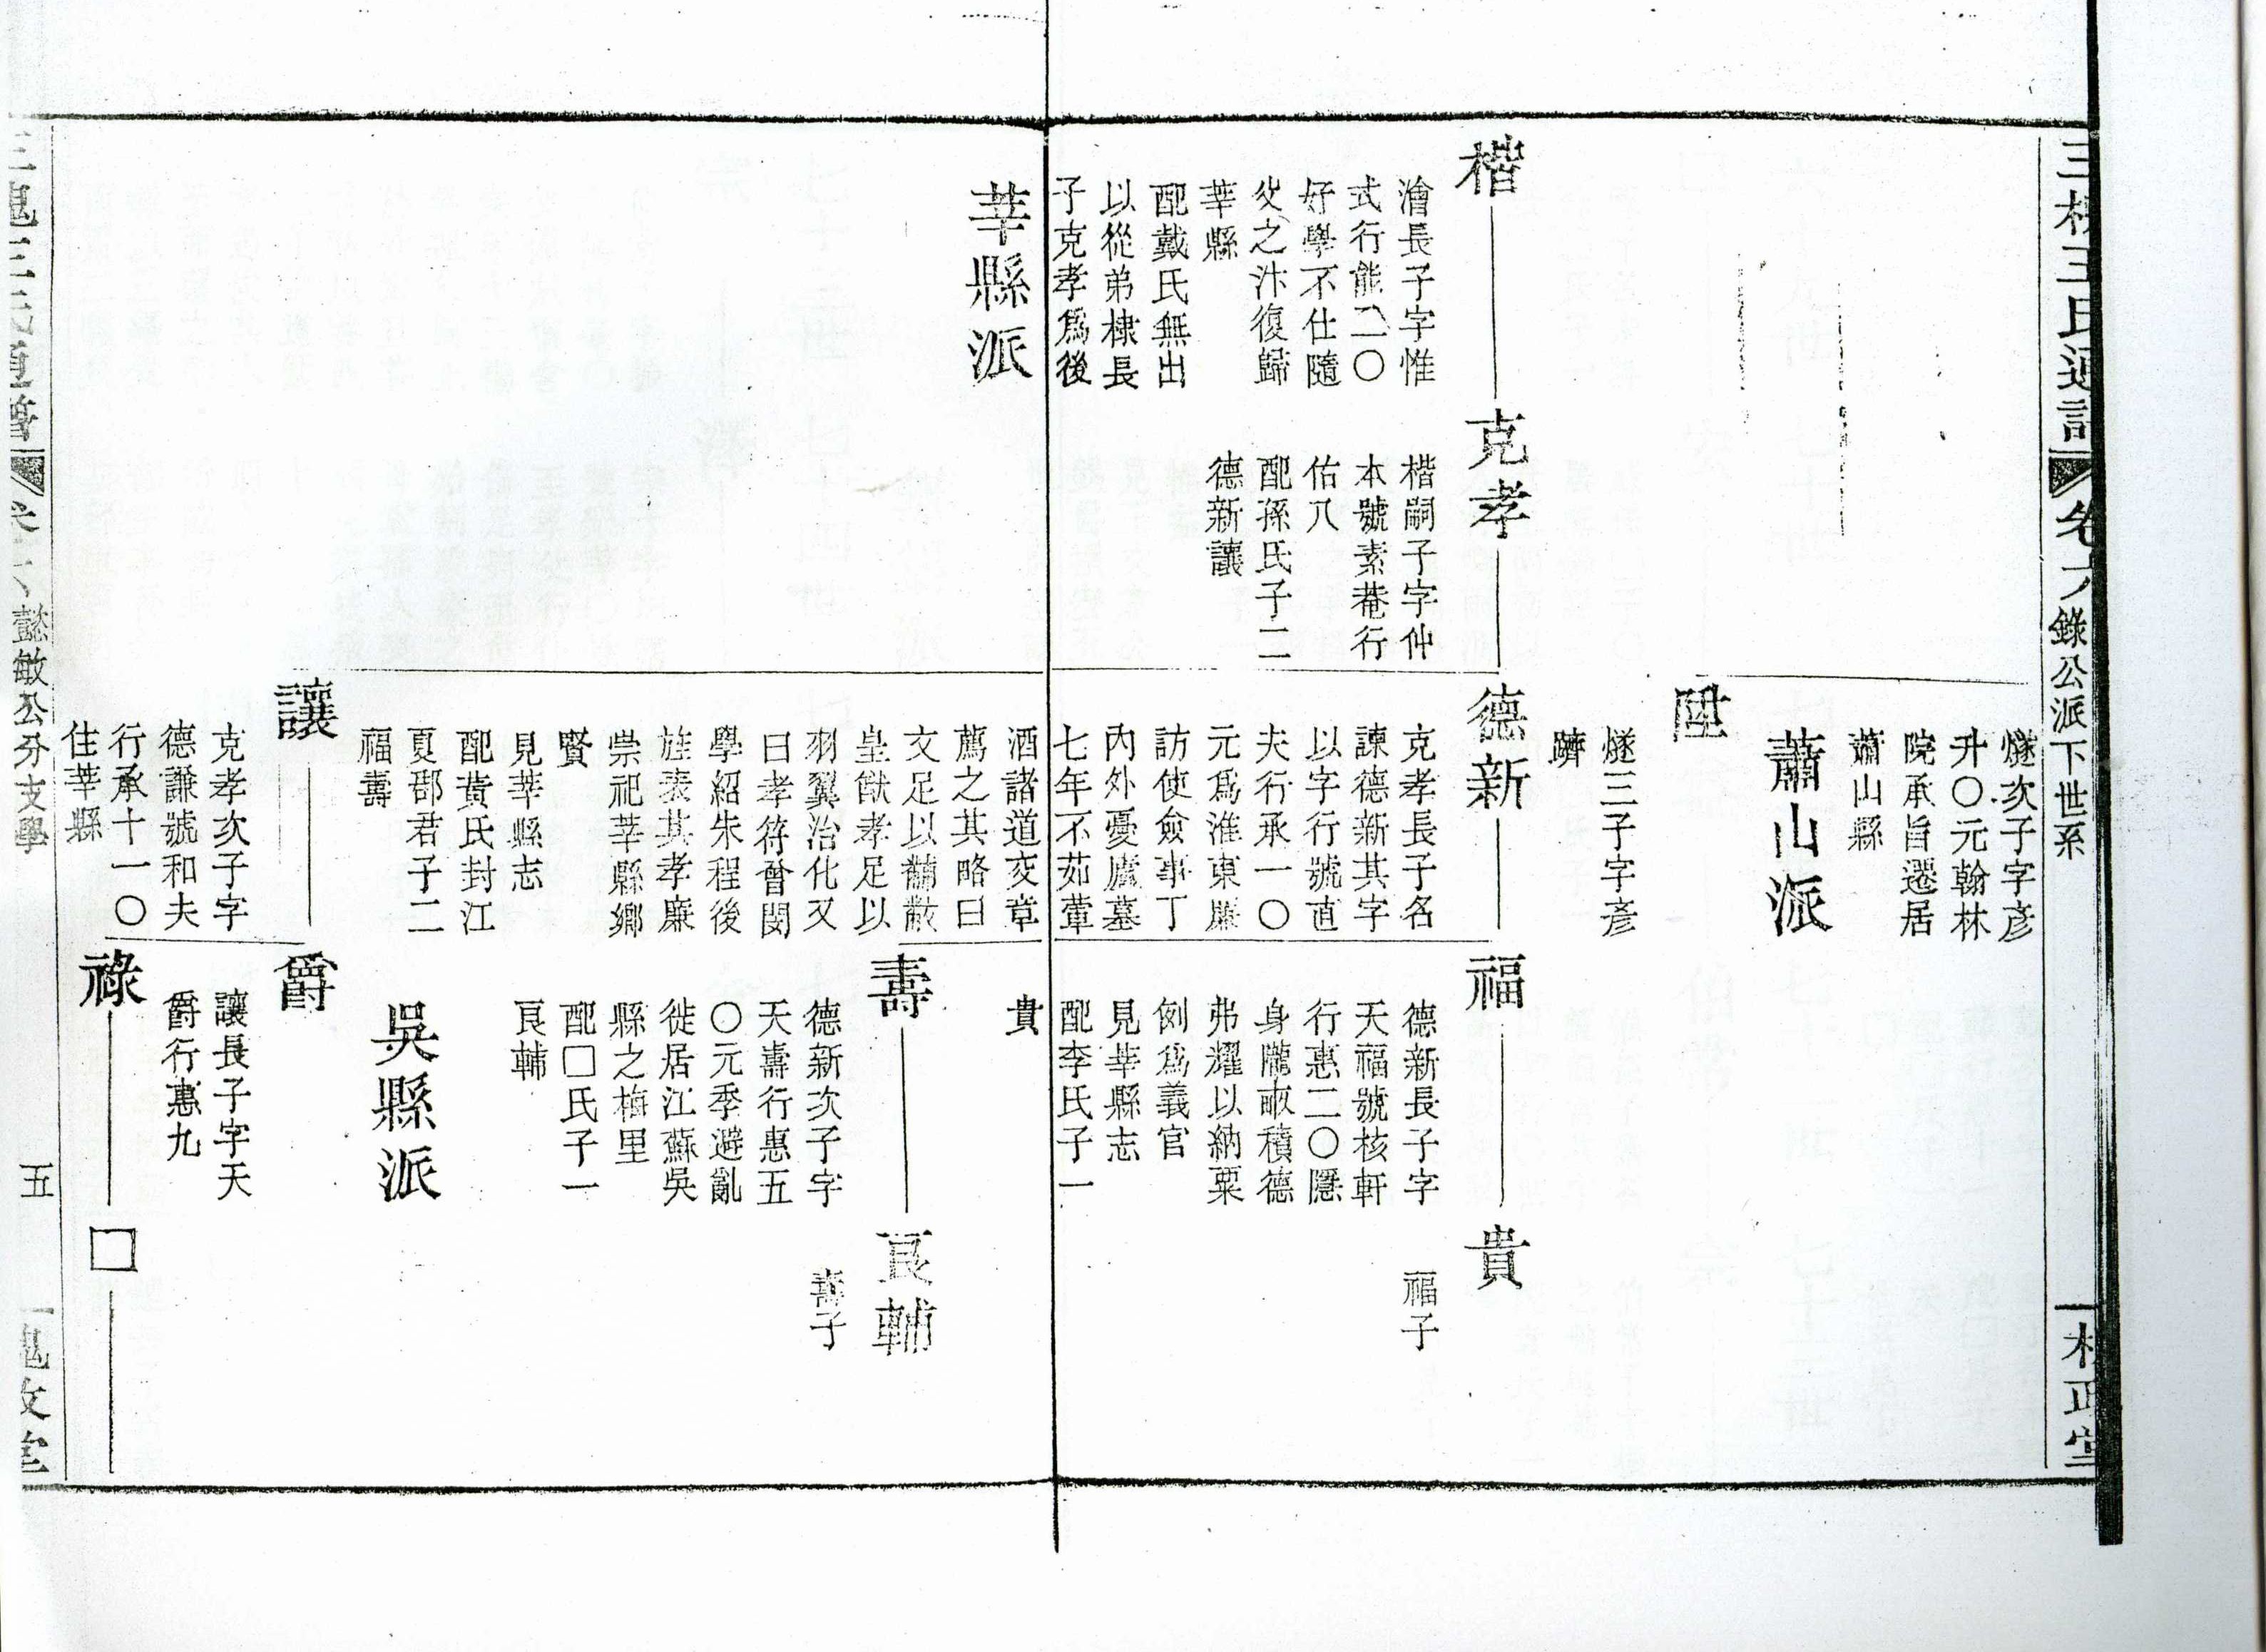 三槐王氏通譜 卷六 錄公派下世系
一 槐政堂
燧次子字彥
升〇元翰林
院承旨遷居
蕭山縣
蕭山派
陞
燧三子字彥
躋
楷
澮長子字惟
式行能二〇
好學不仕隨
父之汴復歸
莘縣
配戴氏無出
以從弟棣長
子克孝爲後
莘縣派
克孝
楷嗣子字仲
本號素菴行
佑八
配孫氏子二
德新讓
德新
克孝長子名
諫德新其字
以字行號直
夫行承一〇
元爲淮東廉
訪使僉事丁
內外憂廬墓
七年不茹葷
酒諸道交章
薦之其略曰
文足以黼黻
皇猷孝足以
羽翼治化又
曰孝符曾閔
學紹朱程後
旌表其孝廉
崇祀莘縣鄉
賢
見莘縣志
配黃氏封江
夏郡君子二
福壽
福
德新長子字
天福號核軒
行惠二〇隱
身隴畝積德
弗耀以納粟
例爲義官
見莘縣志
配李氏子一
貴
貴
福子
壽
德新次子字
天壽行惠五
〇元季避亂
徙居江蘇吳
縣之梅里
配□氏子一
艮輔
艮輔
壽子
吳縣派
讓
克孝次子字
德謙號和夫
行承十一〇
住莘縣
爵
讓長子字天
爵行惠九
祿
□
三槐王氏通譜 卷六 懿敏公分支學
五
槐政堂